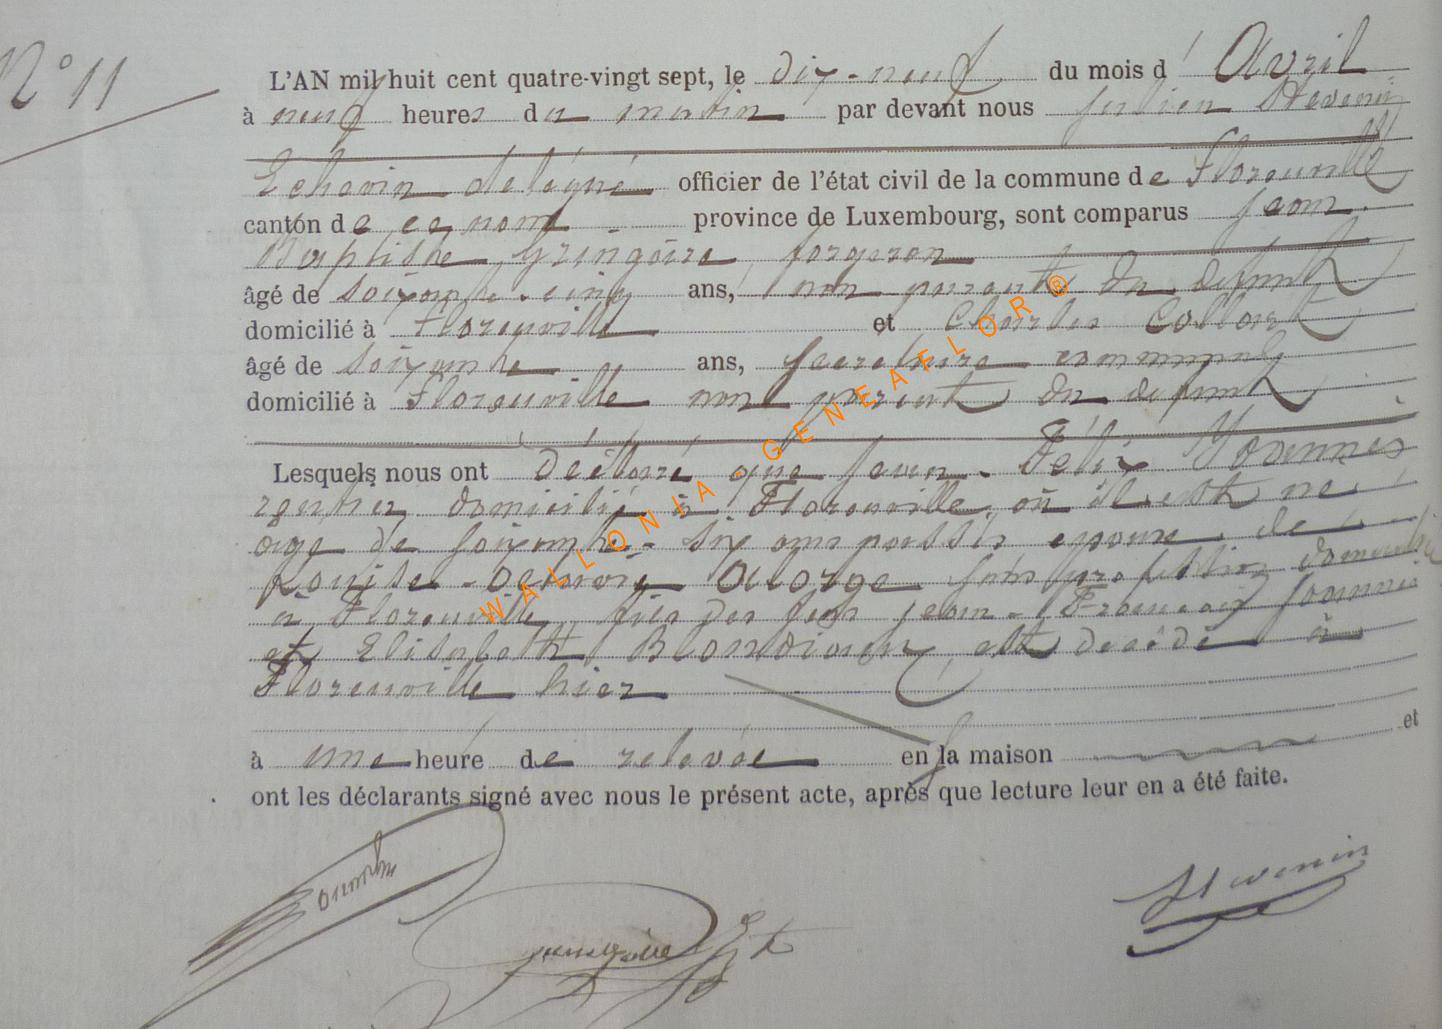 N° 11
L'AN mil huit cent quatre-vingt sept, le dix-neuf du mois d' Avril
à neuf heures du matin par devant nous Julien Stevenin
Echevin délégué officier de l'état civil de la commune de Florenville
canton de ce nom province de Luxembourg, sont comparus Jean
Baptiste Gringoire forgeron
âgé de soixante-cinq ans, non parent du defunt
domicilié à Florenville et Charles Collart
âgé de soixante ans, secretaire communal
domicilié à Florenville non parent du defunt
Lesquels nous ont déclaré que Jean-Félix
rentier domicilié à Florenville où il est né
agé de soixante-six ans passés epoux de
Louise Alorge sans profession domiciliée
à Florenville fils des feus Jean-François
et Elisabeth est decédé à
Florenville hier
à une heure de relevée en la maison et
ont les déclarants signé avec nous le présent acte, après que lecture leur en a été faite.
Gringoire Stevenin
WALLONIA-GENEAFLOR®